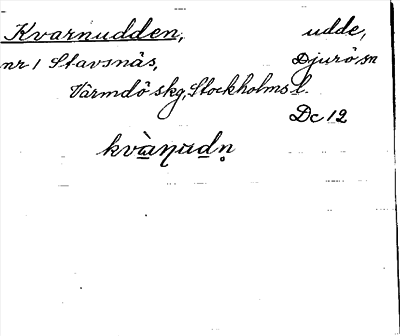 Kvarnudden, udde,
nr 1 Stavsnäs, Djurö sn
Värmdö skg, Stockholms l.
Dc 12
kvàꞃudn̥